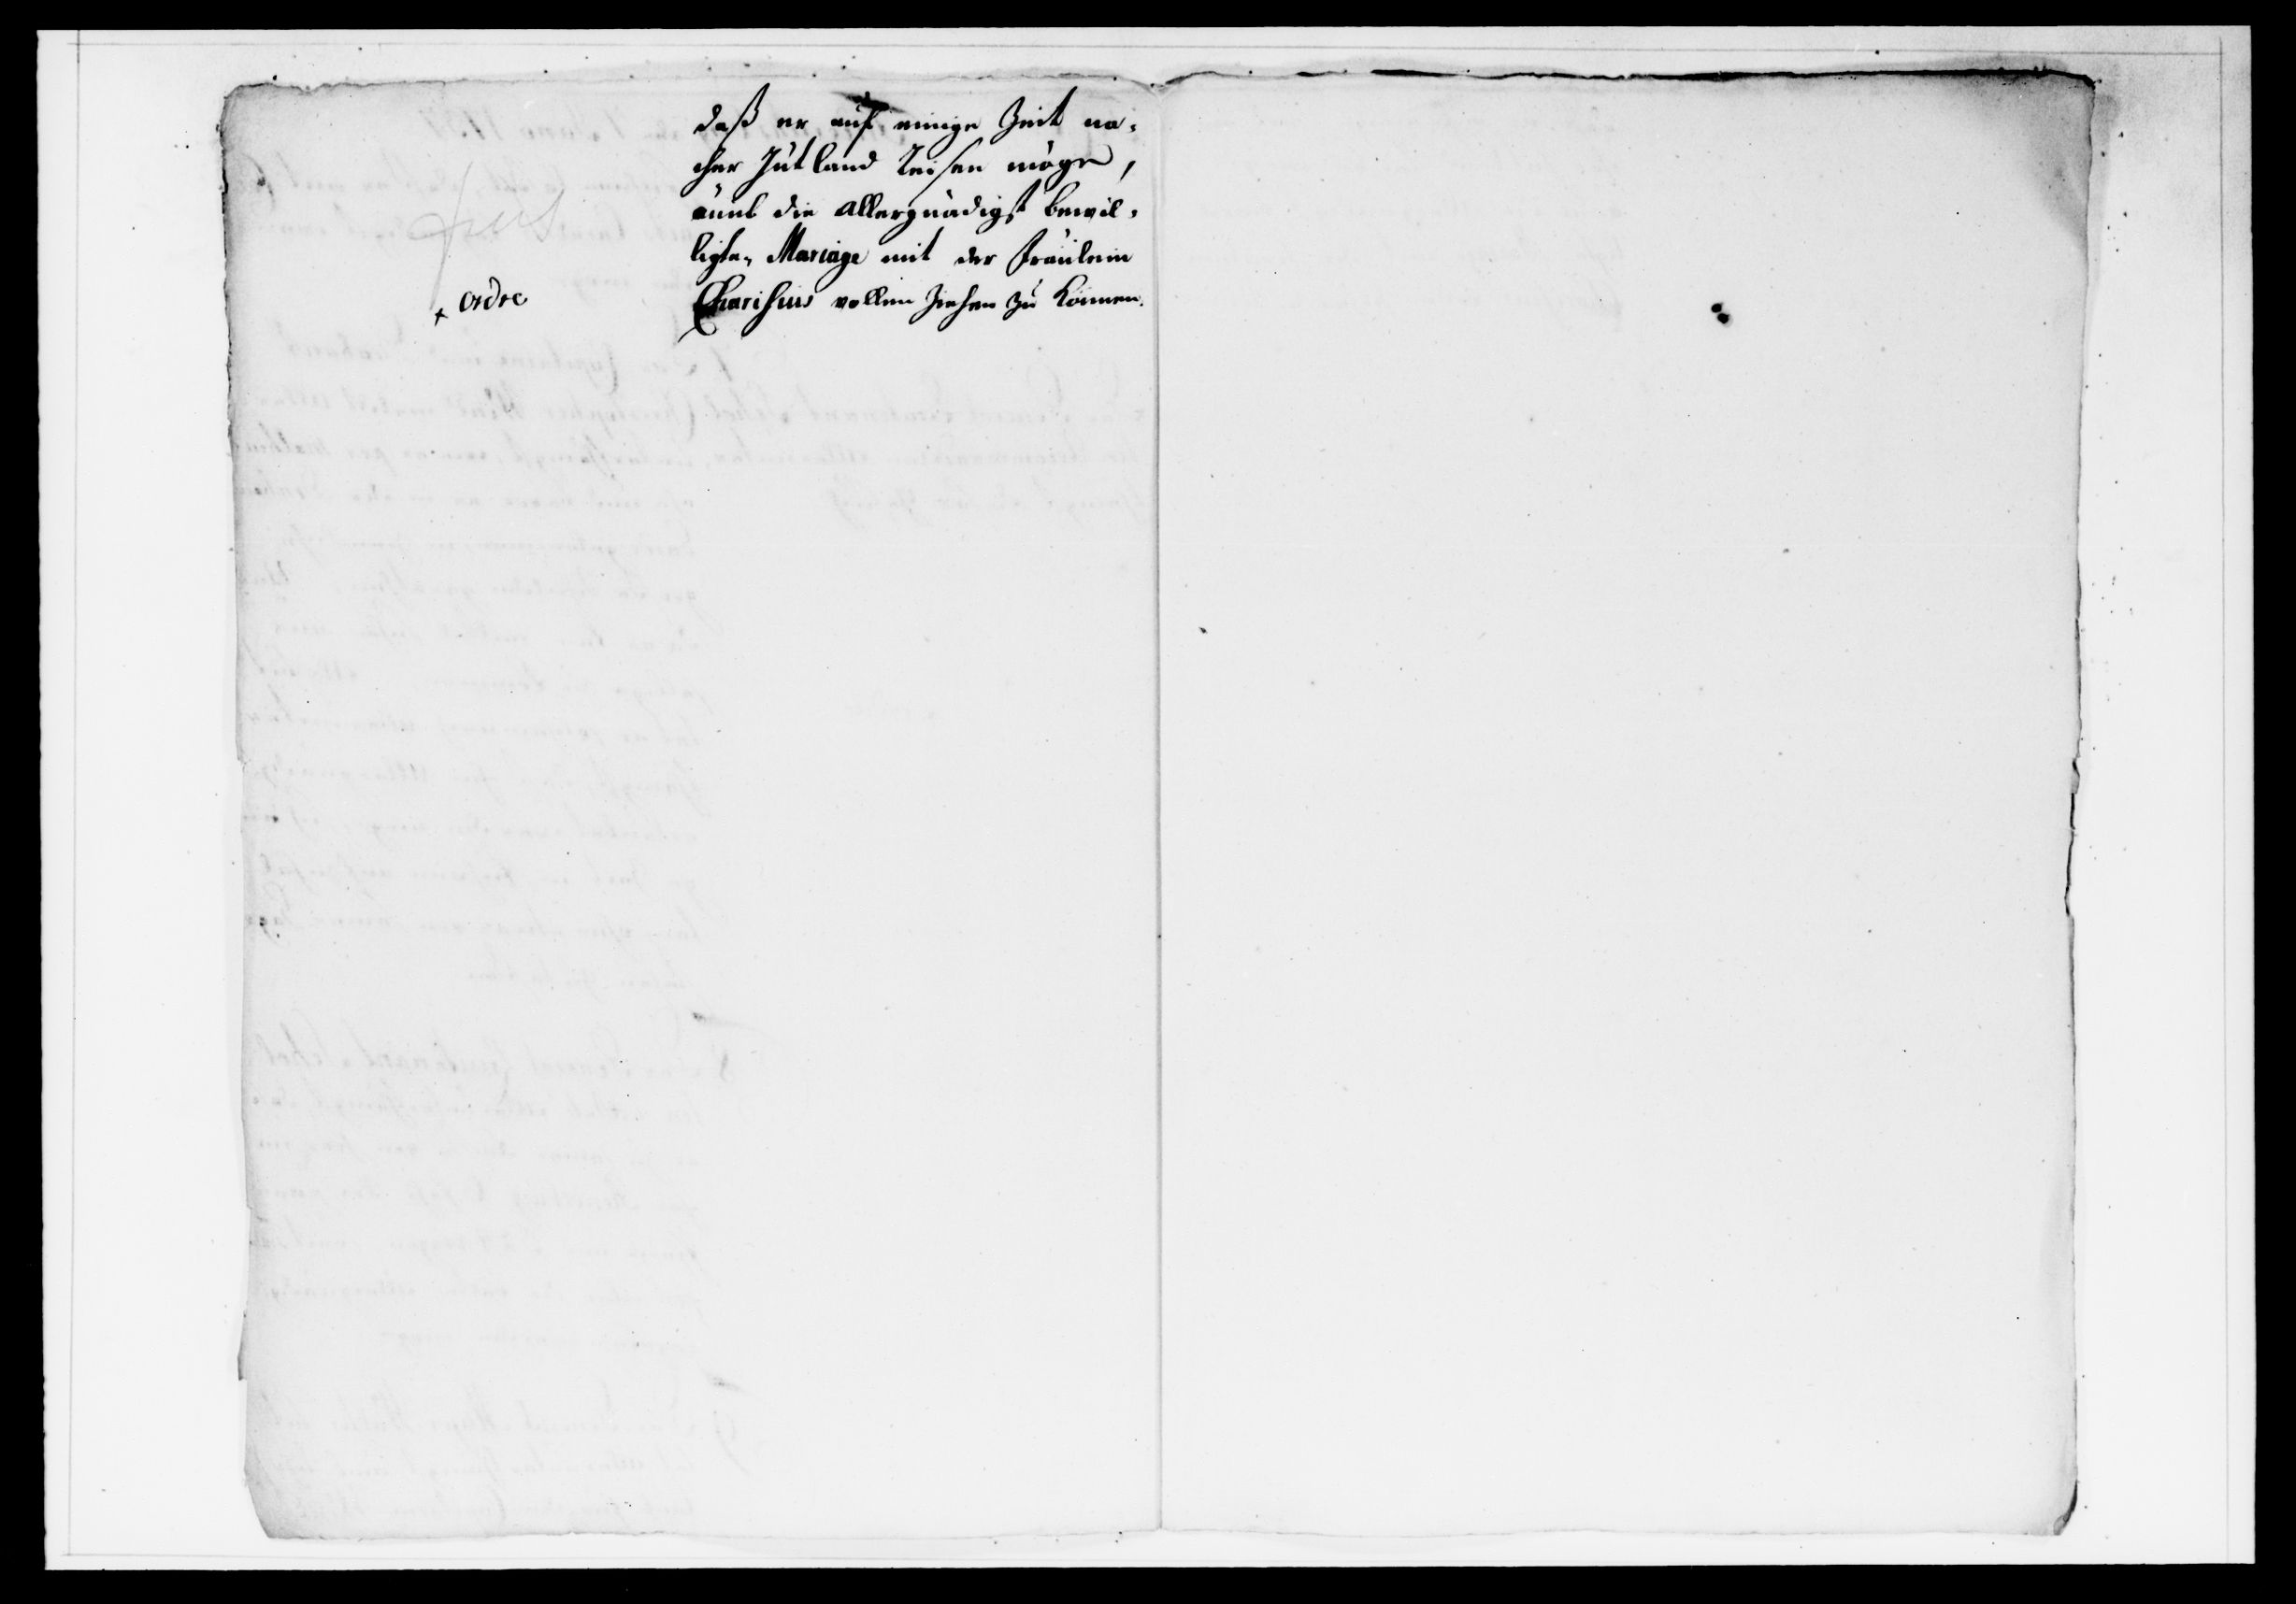 daß er auf einige Zeit na-
cher Jütland Reisen möge,
die Allergnädigst bewil-
ligte Mariage mit der Fräulein
Charisius vollen ziehen zu können.
+ ordre